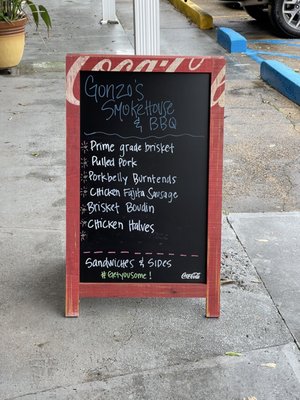 Coca-Cola
Gonzo's
Smokehouse
& BBQ
Prime grade brisket
Pulled Pork
Porkbelly Burntends
Chicken Fajita Sausage
Brisket Boudin
Chicken Halves
Sandwiches & Sides
#Getyousome!
Coca-Cola